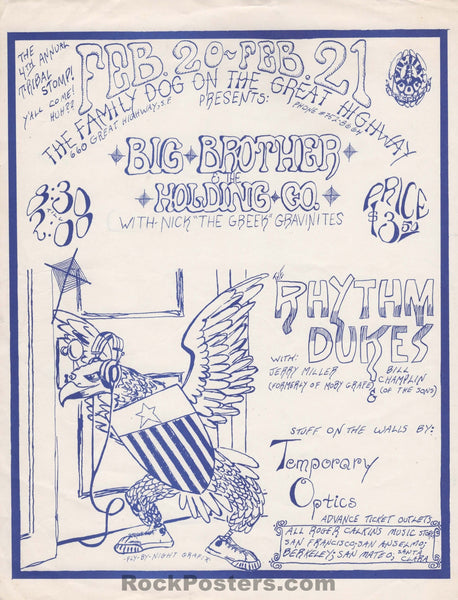 THE
4TH ANNUAL
TRIBAL
STOMP!
Y'ALL COME!
HUH??
FEB. 20~FEB. 21
THE FAMILY DOG ON THE GREAT HIGHWAY
660 GREAT HIGHWAY, S.F.
PRESENTS:
BIG BROTHER
& THE
HOLDING CO.
WITH NICK "THE GREEK" GRAVINITES
8:30
2:00
PRICE
$3.50
THE
RHYTHM
DUKES
WITH:
JERRY MILLER
(FORMERLY OF MOBY GRAPE)
&
BILL
CHAMPLIN
(OF THE SONS)
STUFF ON THE WALLS BY:
Temporary
Optics
ADVANCE TICKET OUTLETS
ALL ROGER CALKINS MUSIC STORES
SAN FRANCISCO, SAN ANSELMO,
BERKELEY, SAN MATEO, SANTA
CLARA
FLY-BY-NIGHT GRAFIX
RockPosters.com